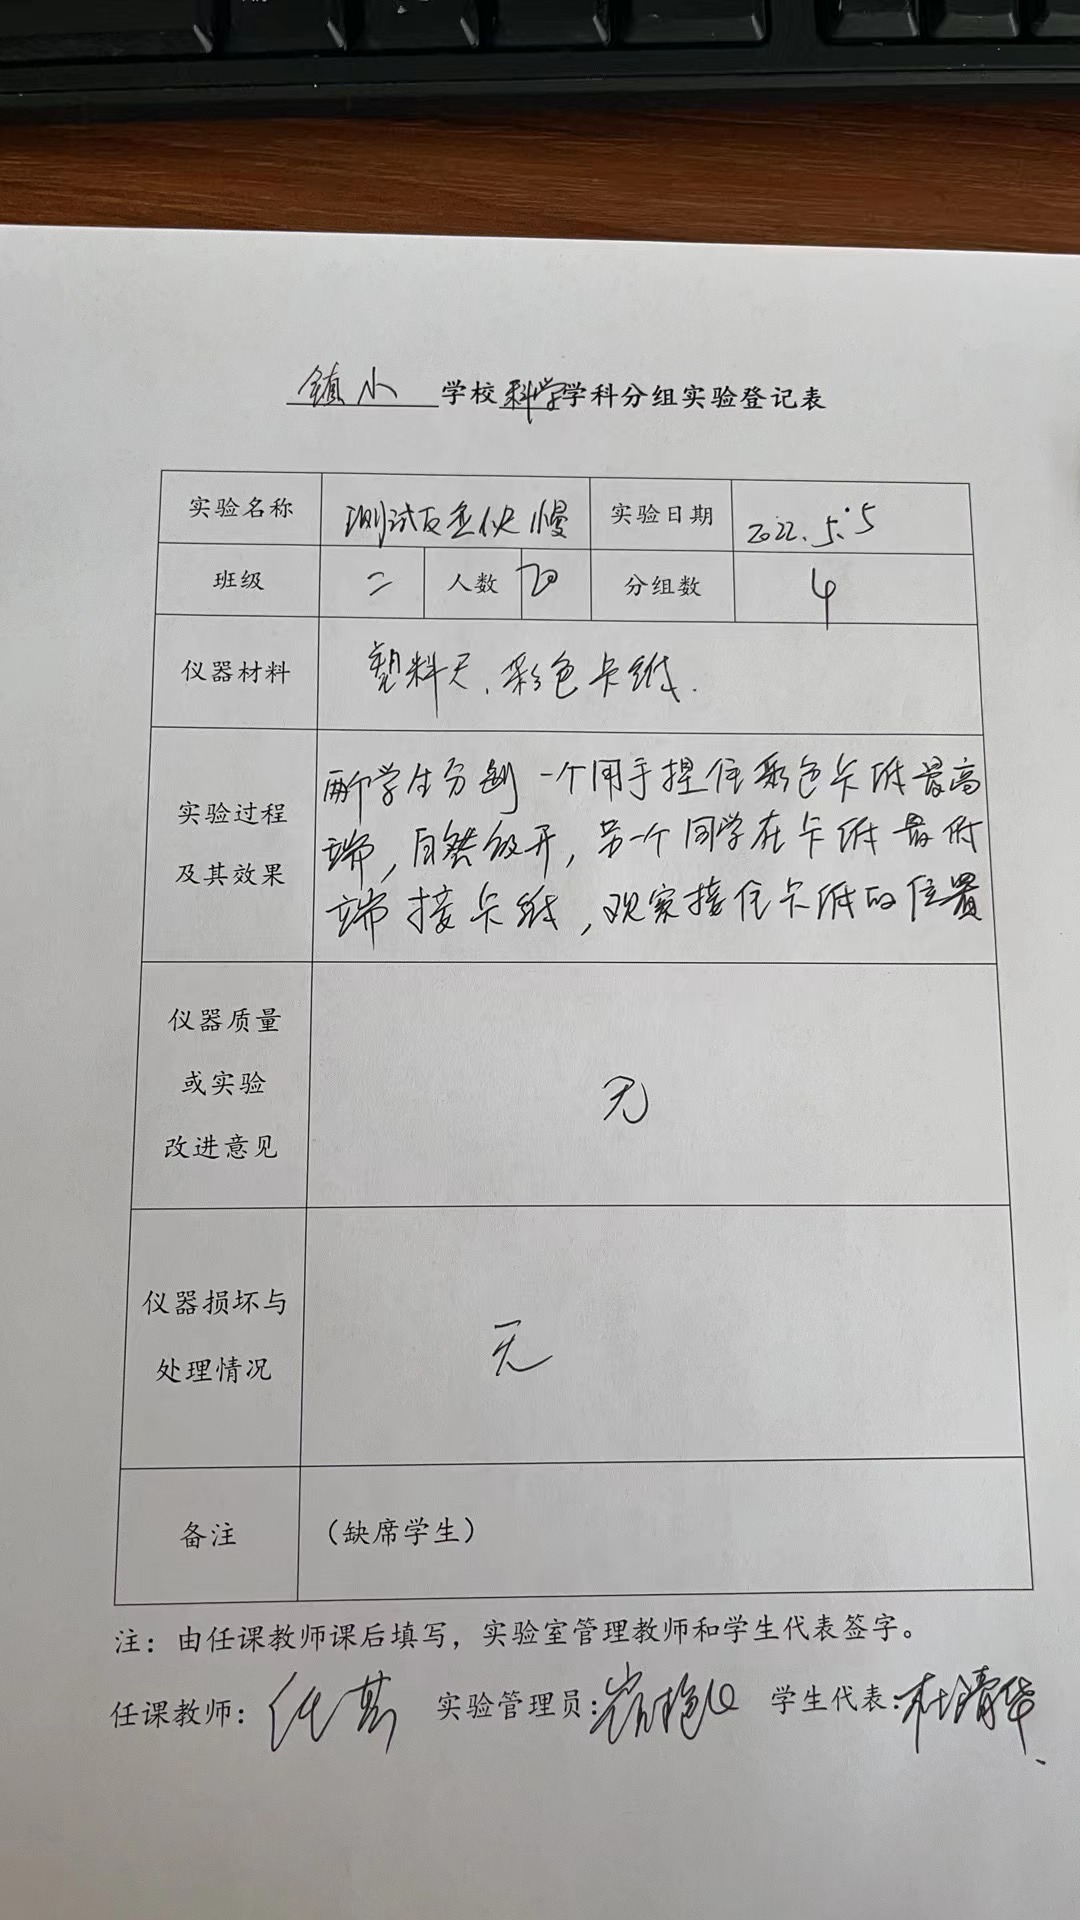 镇小 学校 科学 学科分组实验登记表
实验名称 测试反应快慢 实验日期 2022.5.5
班级 二 人数 20 分组数 4
仪器材料 塑料尺、彩色卡纸.
实验过程及其效果
两个学生分别一个用手捏住彩色卡纸最高
端,自然放开,另一个同学在卡纸最低
端接卡纸,观察接住卡纸的位置
仪器质量
或实验
改进意见
无
仪器损坏与
处理情况
无
备注 (缺席学生)
注:由任课教师课后填写,实验室管理教师和学生代表签字。
任课教师: 实验管理员: 学生代表:杜清华